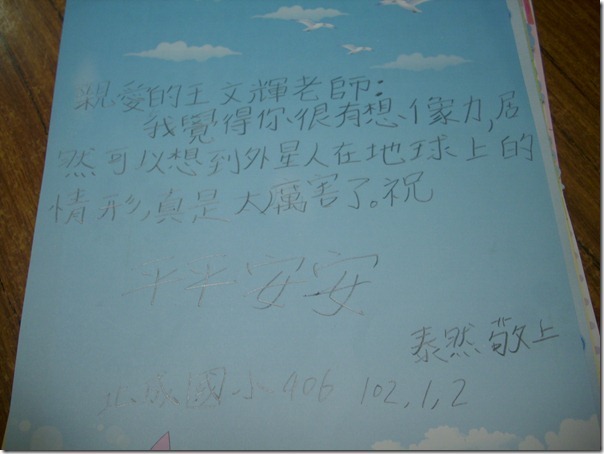 親愛的王文輝老師：
我覺得你很有想像力，居
然可以想到外星人在地球上的
情形，真是大厲害了。祝
平平安安
泰然敬上
國小406 102,1,2